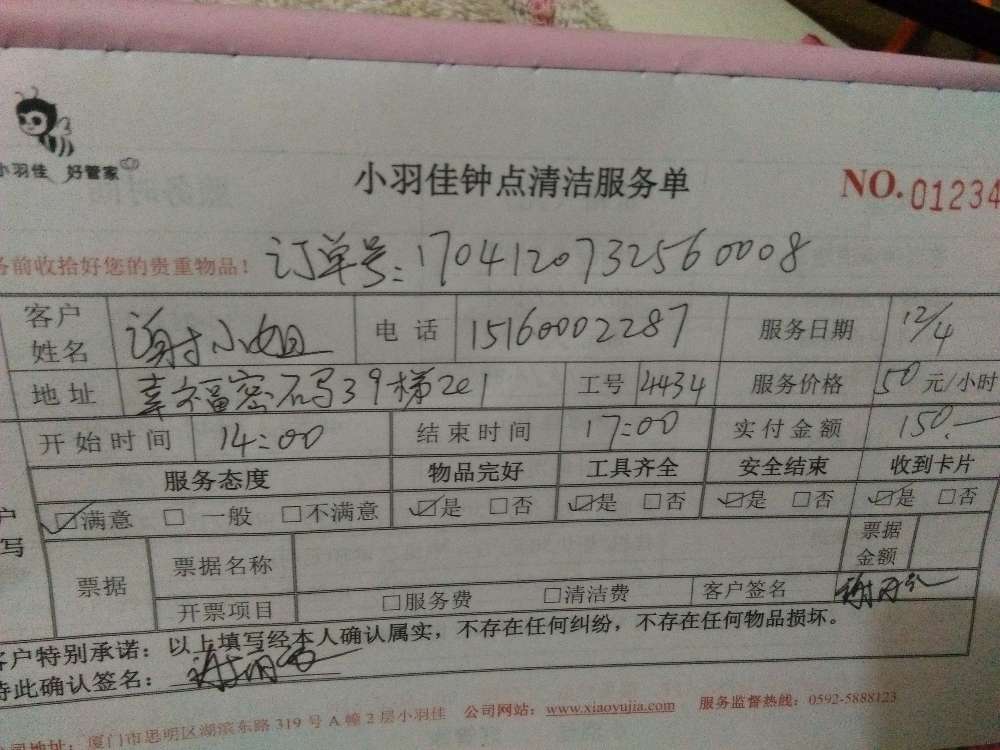 小羽佳 好管家
小羽佳钟点清洁服务单
NO.01234
务前收拾好您的贵重物品！ 订单号：1704120732560008
客户姓名 谢小姐 电话 15160002287 服务日期 12/4
地址 幸福密码39梯2e1 工号 4434 服务价格 50元/小时
开始时间 14:00 结束时间 17:00 实付金额 150.—
服务态度 物品完好 工具齐全 安全结束 收到卡片
☑满意 □ 一般 □不满意 ☑是 □否 ☑是 □否 ☑是 □否 ☑是 □否
户
写
票据 票据名称 票据金额
开票项目 □服务费 □清洁费 客户签名
客户特别承诺：以上填写经本人确认属实，不存在任何纠纷，不存在任何物品损坏。
特此确认签名：
公司地址：厦门市思明区湖滨东路319号A幢2层小羽佳 公司网站：www.xiaoyujia.com 服务监督热线：0592-5888123